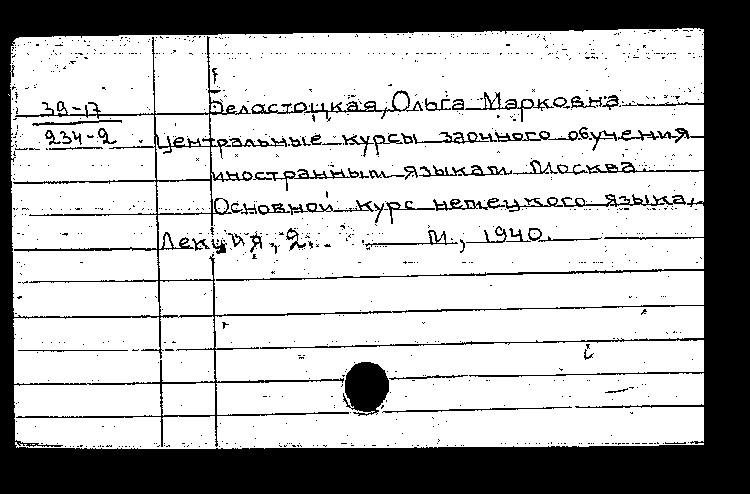 39-17
234-2
Беластоцкая, Ольга Марковна
Центральные курсы заочного обучения
иностранным языкам. Москва.
Основной курс немецкого языка,
Лекция, 2. М., 1940.